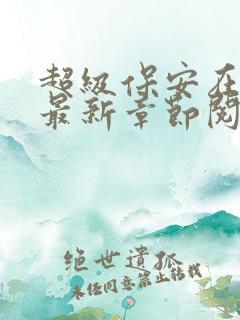 超级保安在
最新章节阅
绝世遗孤
未经同意禁止转载